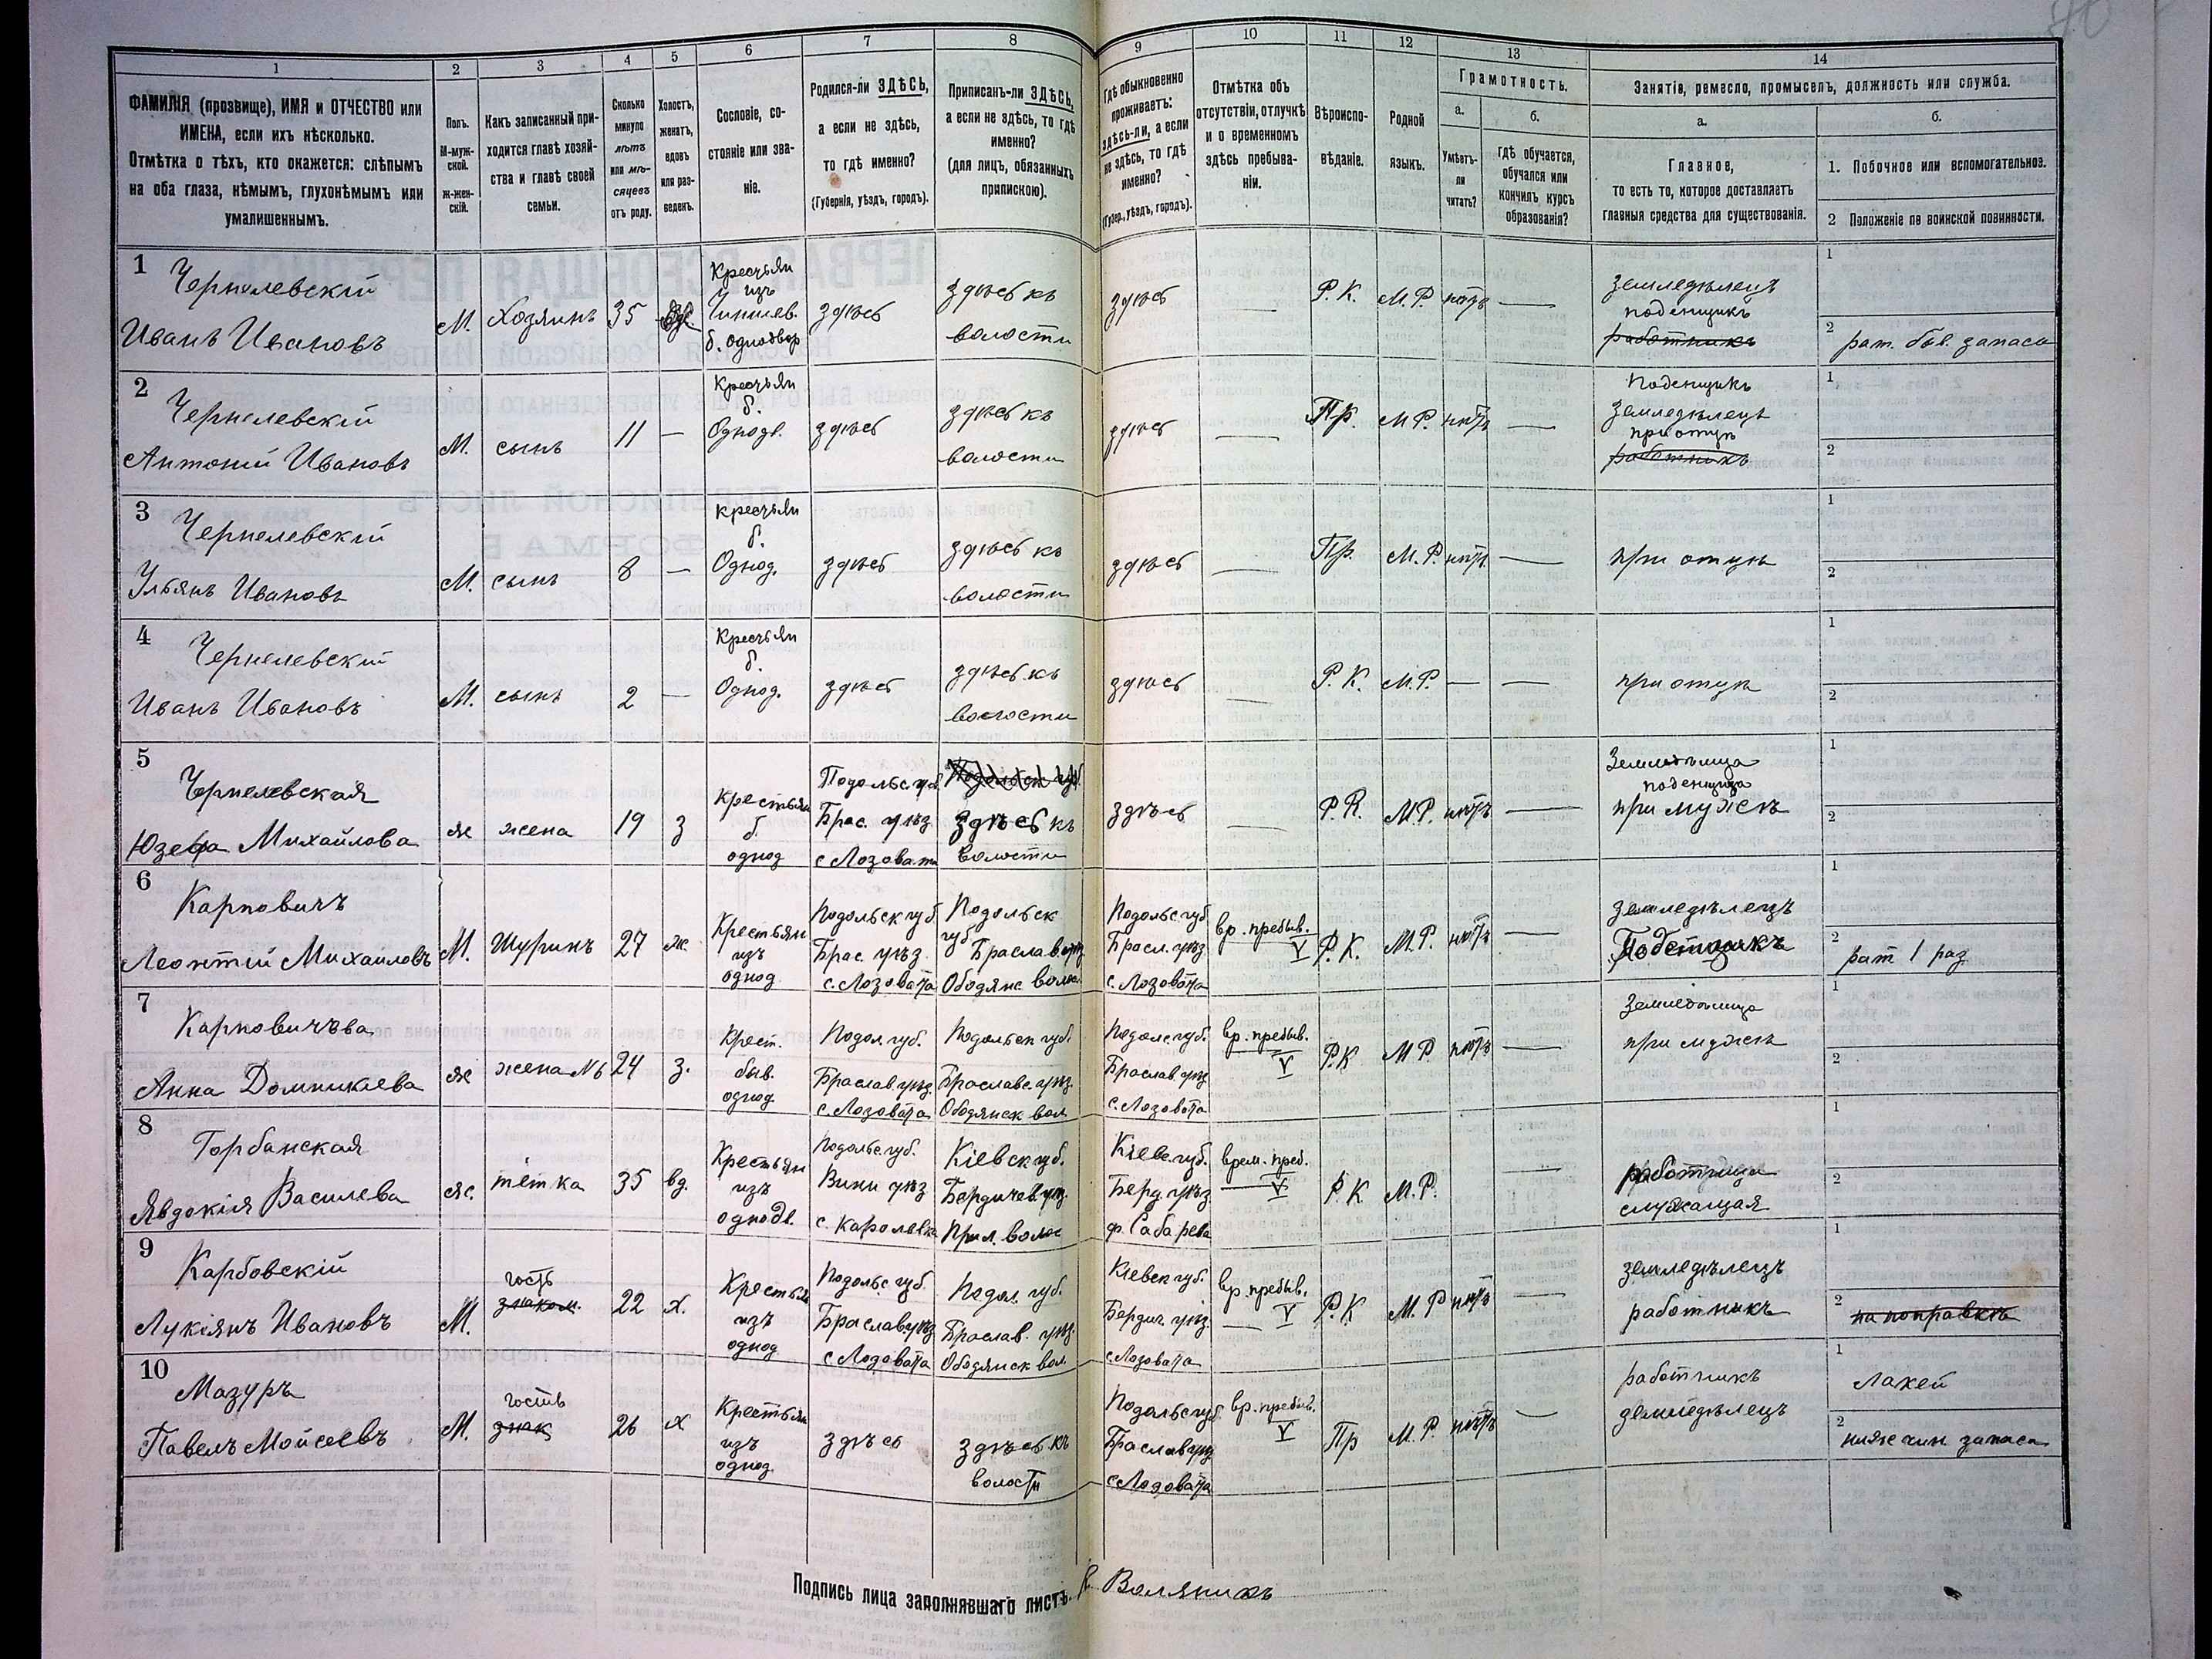 1 2 3 4 5 6 7 8 9 10 11 12 13 14
ФАМИЛІЯ (прозвище), ИМЯ и ОТЧЕСТВО или
ИМЕНА, если ихъ нѣсколько.
Отмѣтка о тѣхъ, кто окажется: слѣпымъ
на оба глаза, нѣмымъ, глухонѣмымъ или
умалишеннымъ.
Полъ.
М-муж-
ской.
Ж-жен-
скій.
Какъ записанный при-
ходится главѣ хозяй-
ства и главѣ своей
семьи.
Сколько
минуло
лѣтъ
или мѣ-
сяцевъ
отъ роду.
Холостъ,
женатъ,
вдовъ
или раз-
веденъ.
Сословіе, со-
стояніе или зва-
ніе.
Родился-ли ЗДѢСЬ,
а если не здѣсь,
то гдѣ именно?
(Губернія, уѣздъ, городъ).
Приписанъ-ли ЗДѢСЬ,
а если не здѣсь, то гдѣ
именно?
(для лицъ, обязанныхъ
припискою).
Гдѣ обыкновенно
проживаетъ:
здѣсь-ли, а если
не здѣсь, то гдѣ
именно?
(Губер., уѣздъ, городъ).
Отмѣтка объ
отсутствіи, отлучкѣ
и о временномъ
здѣсь пребыва-
ніи.
Вѣроиспо-
вѣданіе.
Родной
языкъ.
Грамотность.
а.
Умѣетъ-
ли
читать?
б.
гдѣ обучается,
обучался или
кончилъ курсъ
образованія?
Занятіе, ремесло, промыселъ, должность или служба.
а.
Главное,
то есть то, которое доставляетъ
главныя средства для существованія.
б.
1. Побочное или вспомогательное.
2 Положеніе по воинской повинности.
1
Чернелевскій
Иванъ Ивановъ
М. Хозяинъ 35
Кресчьян
изъ
б. однодвор
здѣсь
здѣсь къ
волости
здѣсь — Р. К. М. Р. нѣтъ —
земледѣлецъ
поденщикъ
работникъ
1
2 рат. запаса
2
Чернелевскій
Антоній Ивановъ
М. сынъ 11 —
Кресчьян
б.
Однодв.
здѣсь
здѣсь къ
волости
здѣсь — Пр. М. Р. нѣтъ —
Поденщикъ
земледѣлецъ
при отцѣ
работникъ
1
2
3
Чернелевскій
Ульянъ Ивановъ
М. сынъ 8 —
кресчьян
б.
Однод.
здѣсь
здѣсь къ
волости
здѣсь — Пр. М. Р. нѣтъ —
при отцѣ
1
2
4
Чернелевскій
Иванъ Ивановъ
М. сынъ 2 —
Кресчьян
б.
Однод.
здѣсь
здѣсь къ
волости
здѣсь — Р. К. М. Р. — —
при отцѣ
1
2
5
Чернелевская
Юзефа Михайлова
ж жена 19 з
крестьян
б.
однод
Подольс губ
Брас. уѣз.
с Лозовата
Подольск губ
здѣсь къ
волости
здѣсь — Р. К. М. Р. нѣтъ —
Земледѣлица
поденщица
при мужѣ
1
2
6
Карповичъ
Леонтій Михаиловъ
М. Шуринъ 27 ж.
Крестьян
изъ
однод
Подольск губ
Брас. уѣз.
с. Лозовата
Подольск
губ Браслав. уѣз
Ободянс волос
Подольс. губ
Брасл. уѣз.
с. Лозовата
вр. пребыв.
V
Р. К. М. Р. нѣтъ —
земледѣлецъ
Поденщикъ
1
2 рат 1 раз
7
Карповичъва
Анна Доминикіева
ж жена №6 24 з.
Крест.
быв.
однод.
Подол. губ.
Браслав. уѣз.
с. Лозовата
Подольск губ.
Браславс. уѣз.
Ободянск вол
Подолс губ.
Браслав. уѣз
с. Лозовата
вр. пребыв.
V
Р. К М. Р нѣтъ —
Земледѣлица
при мужѣ
1
2
8
Горбанская
Явдокія Василева
ж. тетка 35 вд.
Крестьян
изъ
однодв.
Подольс. губ.
Вини уѣз
с. Каролевка
Кіевск губ.
Бердичев. уѣз.
Кіевс. губ.
Берд. уѣз.
врем. преб.
V
Р. К М. Р. —
работница
служащая
1
2
9
Карбовскій
Лукіянъ Ивановъ
М.
гость
знаком.
22 х.
Крестьян
изъ
однод
Подольс губ.
Браслав уѣз
с Лозовата
Подол. губ.
Браслав. уѣз.
Ободянск вол.
Кіевск губ.
Бердич уѣз.
с. Лозовата
вр. пребыв.
— V
Р. К М. Р нѣтъ —
земледѣлецъ
работникъ
1
2 на поправкѣ
10
Мазуръ
Павелъ Мойсеевъ
М.
гость
знак
26 х
Крестьян
изъ
однод.
здѣсь
здѣсь къ
волости
Подольс губ
Браслав уѣз
с Лозовата
вр. пребыв.
V
Пр М. Р. нѣтъ —
работникъ
земледѣлецъ
1
лакей
2
ниж чин запаса
Подпись лица заполнявшаго листъ.